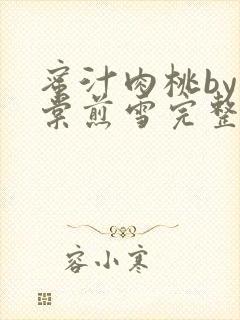 蜜汁肉桃by
棠煎雪完整
容小寒